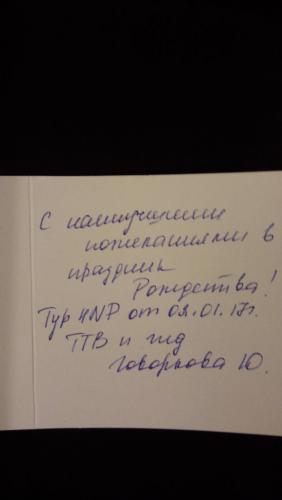 С наилучшими
пожеланиями в
праздник
Рождества!
Тур 4NP от 02.01.17г.
ТТВ и гид
Говоркова Ю.